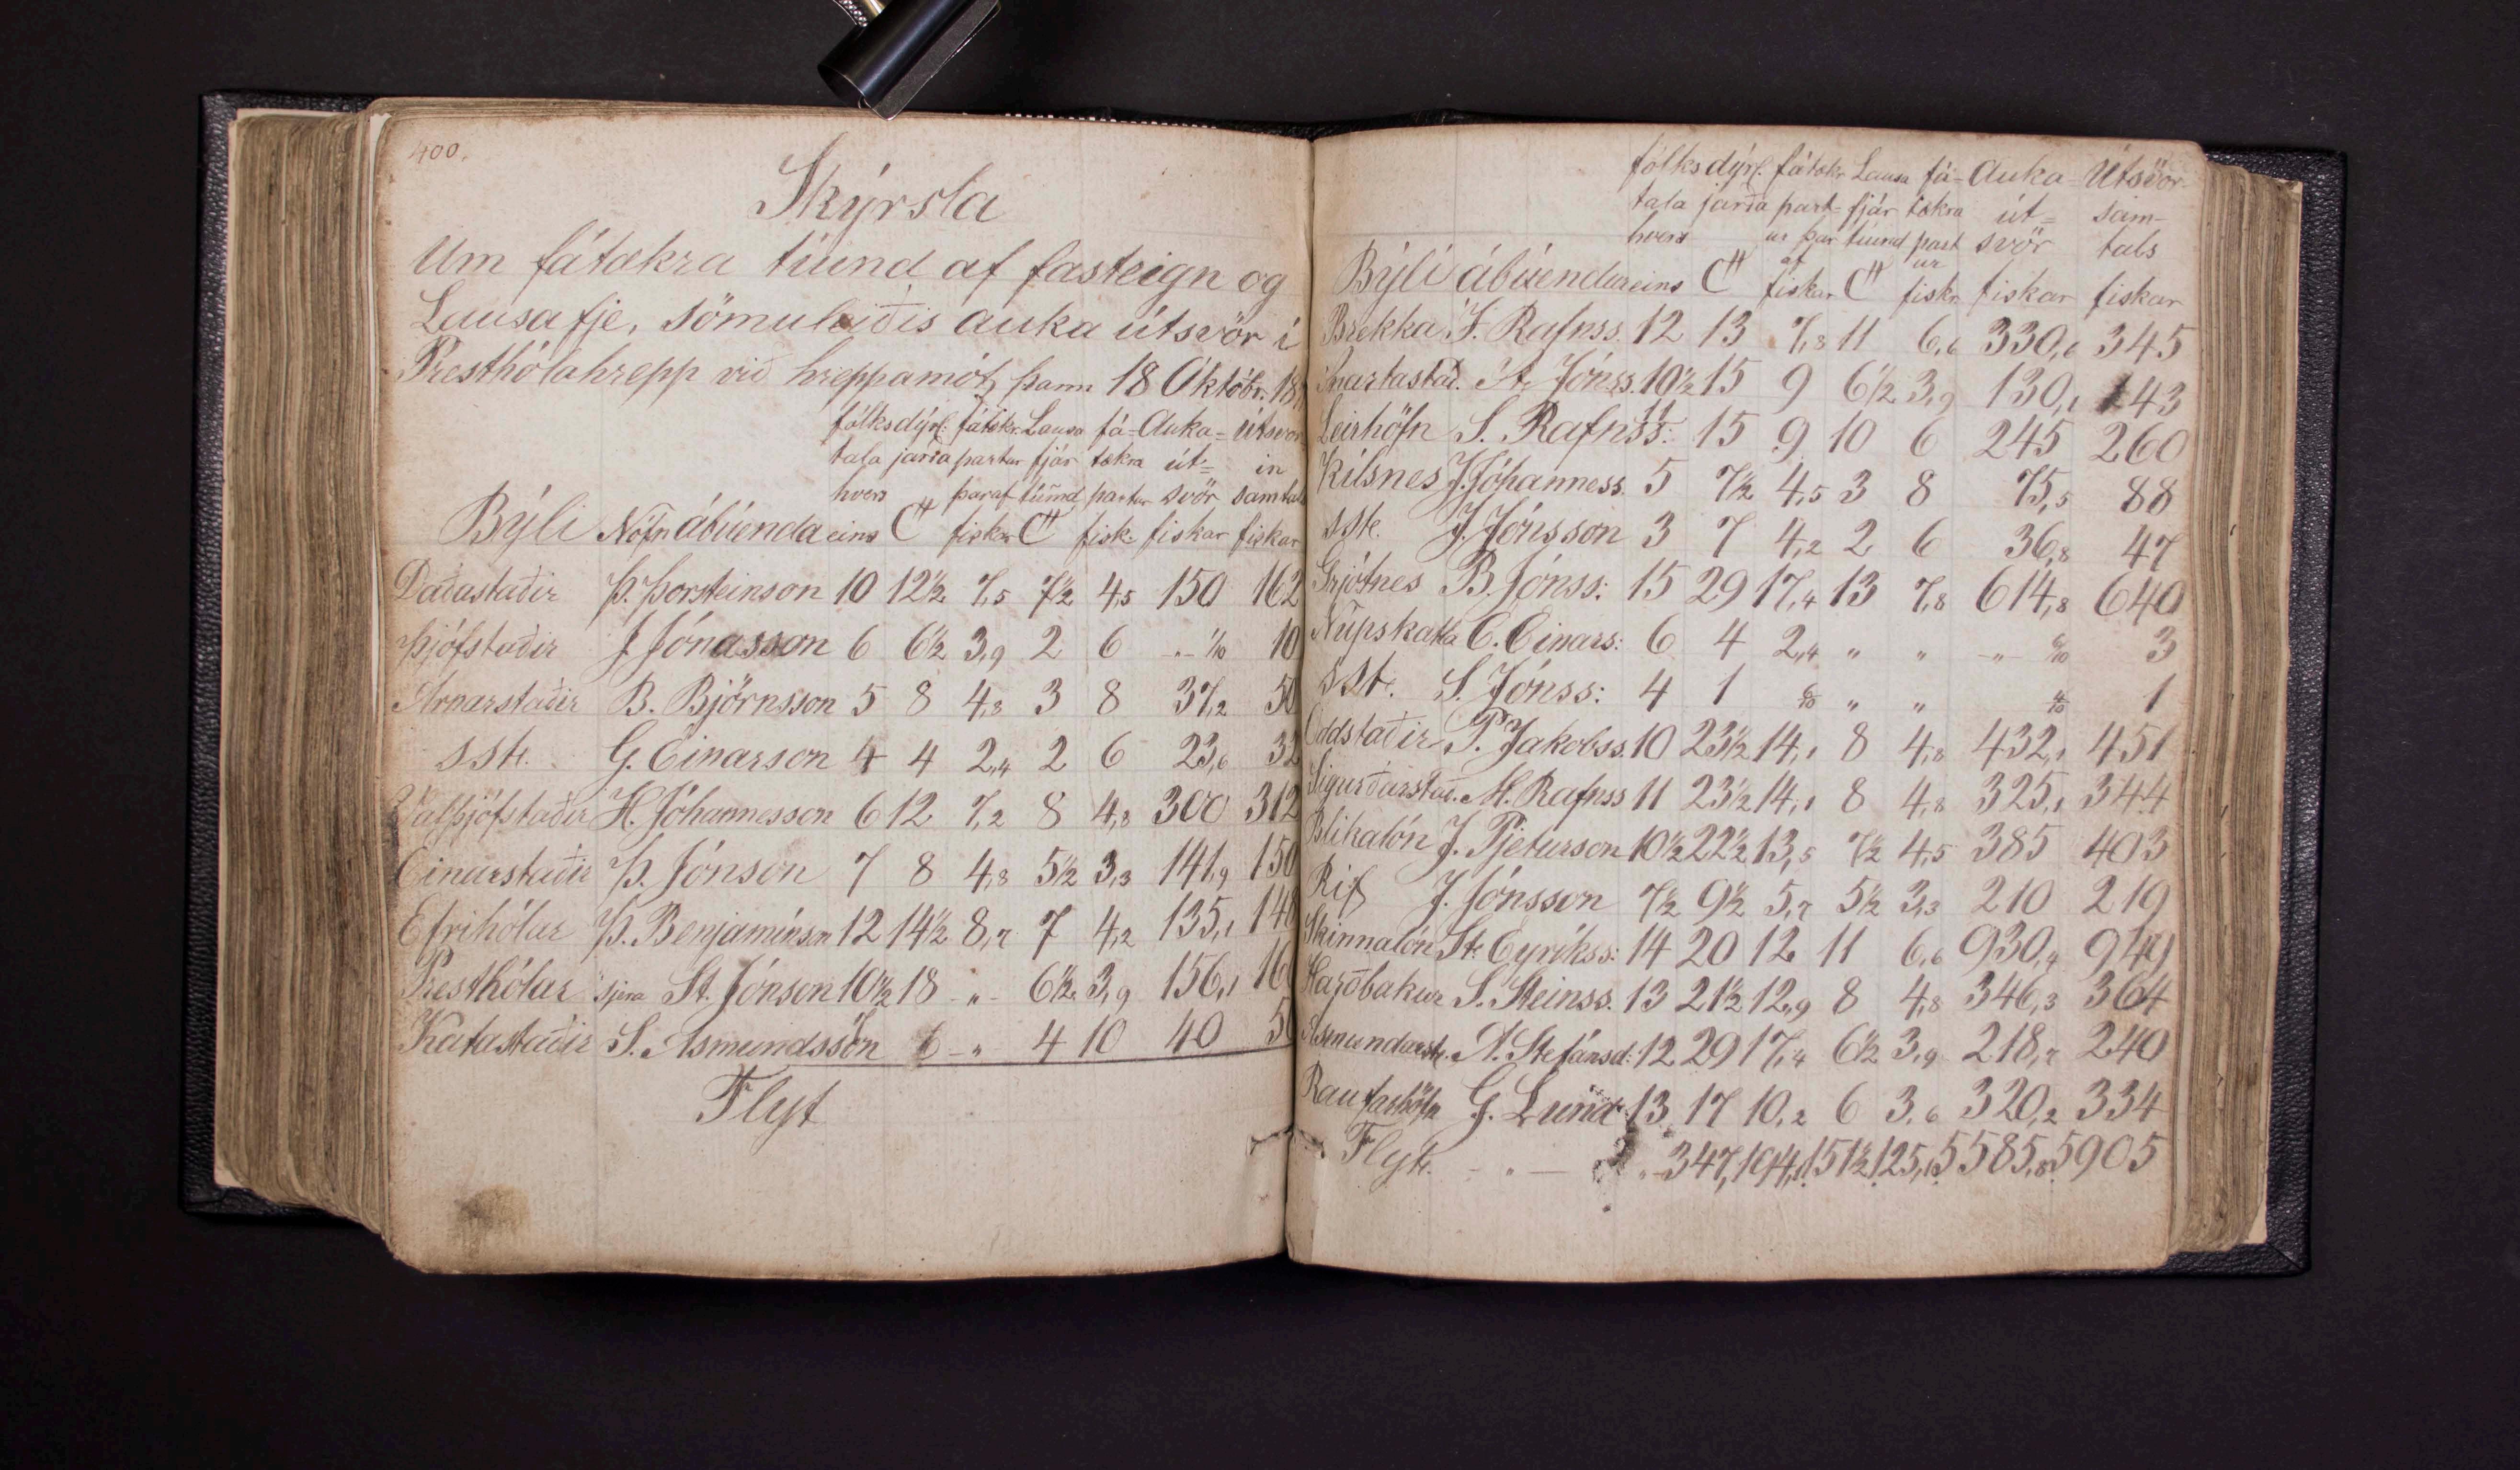 400.
Skýrsla
Um fátækra tíund af fasteign og
Lausafje, sömuleiðis auka útsvör í
Presthólahrepp við hreppamót þann 18 Októbr. 18
fólks dýrl. fátækr. Lausa fá= Auka= útsvör
tala jarða partur fjár tækra út= in
hvers þaraf tíund partur svör samtals
Býli Nöfn ábúenda eins C# fiskar C# fisk. fiskar fiskar
Daðastaðir Þ. Þorsteinson 10 12½ 7,5 7½ 4,5 150 162
Þjófstaðir J Jónasson 6 6½ 3,9 2 6 „ 1/10 10
Arnarstaðir B. Björnsson 5 8 4,8 3 8 37,2 50
sst. G. Einarson 4 4 2,4 2 6 23,6 32
Valþjófstaðir H. Jóhannesson 6 12 7,2 8 4,8 300 312
Einarstaðir Þ. Jónson 7 8 4,8 5½ 3,3 141,9 150
Efrihólar Þ. Benjamínson 12 14½ 8,7 7 4,2 135,1 148
Presthólar sjera St. Jónson 10½ 18 „ 6½ 3,9 156,1 16
Katastaðir S. Asmundssön 6 „ 4 10 40 50
Flyt
fólks dýrl. fátækr Lausa fá= Auka= Útsvör
tala jarða part= fjár tækra út= sam-
hvers ur þar tíund part svör tals
af ur
Býli ábúendur eins C# fiskar C# fiskr. fiskar fiskar
Brekka J. Rafnss. 12 13 7,8 11 6,6 330,6 345
Snartastað. St. Jónss. 10½ 15 9 6½ 3,9 130,1 143
Leirhöfn S. Rafnss: 11 15 9 10 6 245 260
Kilsnes J. Jóhanness. 5 7½ 4,5 3 8 75,5 88
sst. J. Jónsson 3 7 4,2 2 6 36,8 47
Grjótnes B. Jónss: 15 29 17,4 13 7,8 614,8 640
Núpskatla E. Einars: 6 4 2,4 „ „ „ 6/10 3
sst. S. Jónss: 4 1 6/10 „ „ 4/10 1
Oddstaðir P. Jakobss. 10 23½ 14,1 8 4,8 432,1 451
Sigurðarstað. M. Rafnss 11 23½ 14,1 8 4,8 325,1 344
Blikalón J. Pjeturson 10½ 22½ 13,5 7½ 4,5 385 403
Rif J. Jónsson 7½ 9½ 5,7 5½ 3,3 210 219
Skinnalón St. Eyríkss: 14 20 12 11 6,6 930,4 949
Harðbakur S. Steinss. 13 21½ 12,9 8 4,8 346,3 364
Asmundarst. A. Stefánsd: 12 29 17,4 6½ 3,9 218,7 240
Raufarhöfn G. Lund 13 17 10,2 6 3,6 320,2 334
Flyt. „ „ 347, 194,1 151½ 125,1 5585,8 5905